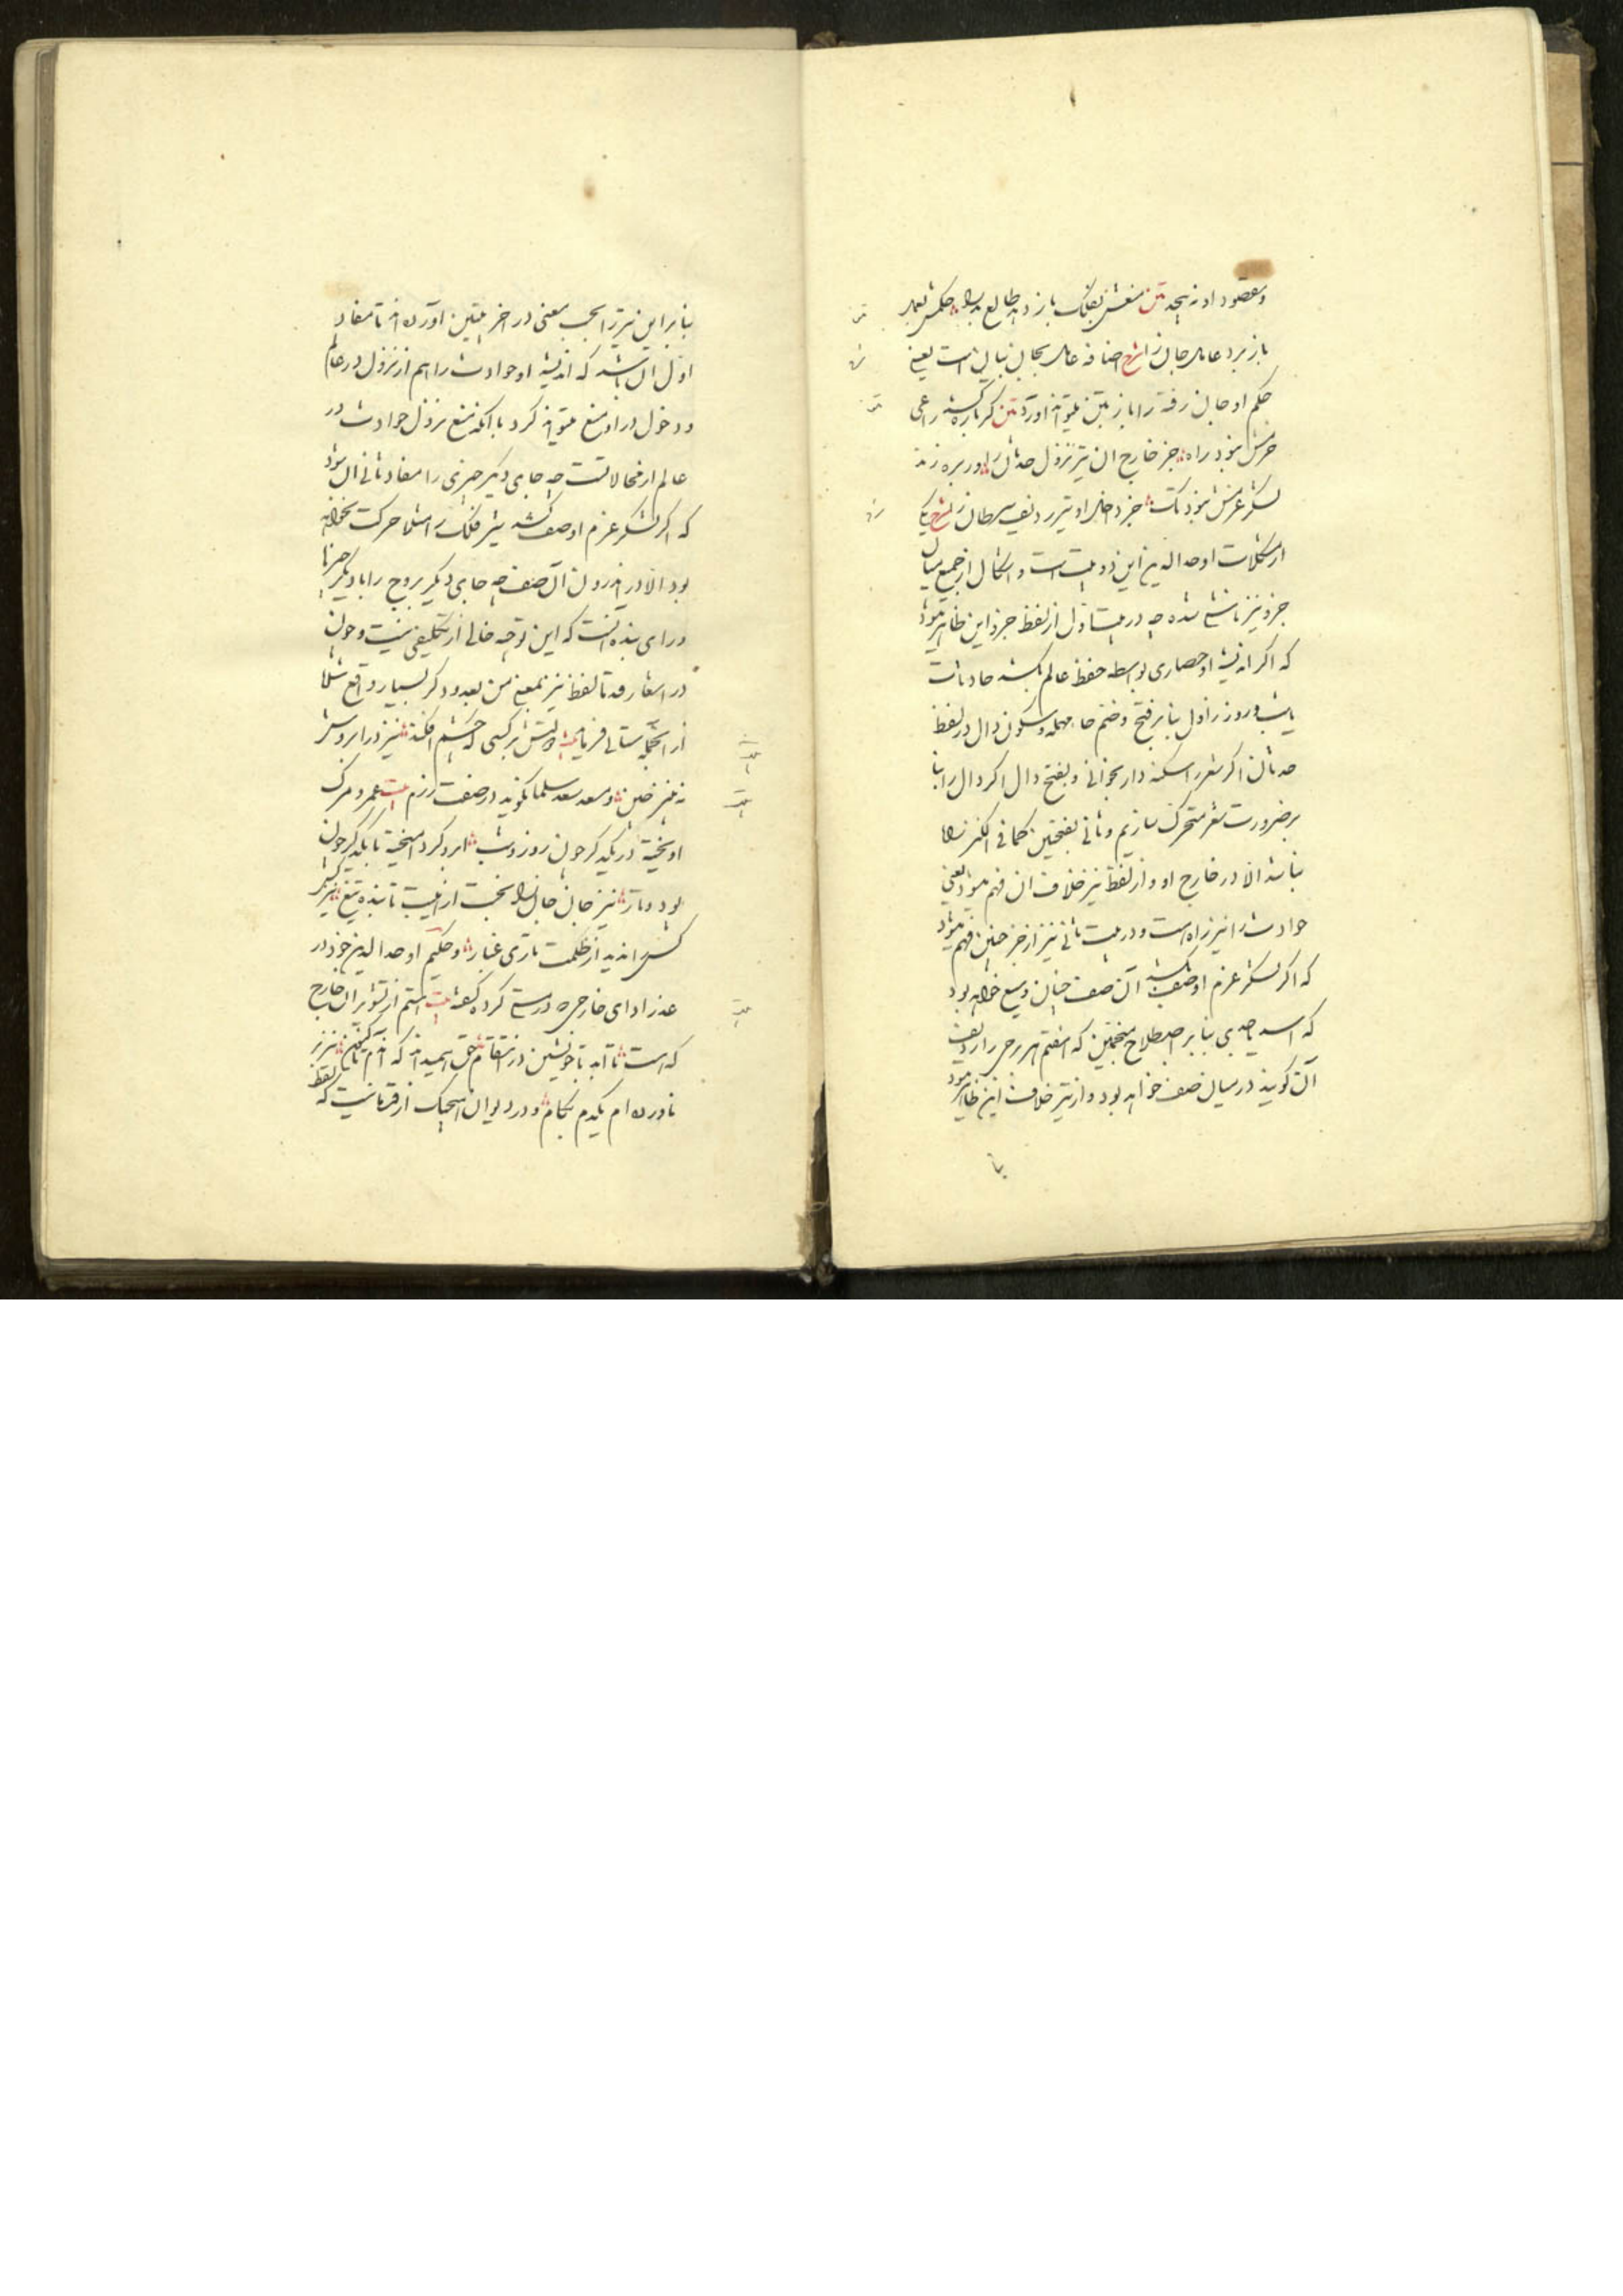 و مقصود او نه بجد متن منعش بفلک باز دهد طالع بد را حکمش بعمل
باز برد عامل جان را شرح اضافه عامل بجان بیانی است یعنی
حکم او جان رفته را باز بتن میتواند آورد متن گر باره کشد راعی
حزمش نبود راه جز خارج آن نیز نزول حدثان را ور پره زند
لشکر عزمش نبود تک جز داخل او نیز ردیف سرطان را شرح یکی
از مشکلات اوحد الدین این دو بیت است و اشکال از جمع میان
جز و نیز ناشی شده چه در بیت اول از لفظ جز این ظاهر میشود
که اگر اندیشه او حصاری بواسطه حفظ عالم بکشد حادثات
یا شب و روز را اول بنا بر فتح و ضم حاء مهمله و سکون دال در لفظ
حدثان اگر شعر را سکته دار بخوانی و بفتح دال اگر دال را بنا
بر ضرورت شعر متحرک سازیم و ثانی بفتحتین کما فی الکنز راه
نباشد الا در خارج او و از لفظ نیز خلاف آن فهم میشود یعنی
حوادث را نیز راه است و در بیت ثانی نیز از جز چنین فهم میشود
که اگر لشکر عزم او صف کشد آن صف چنان وسیع خواهد بود
که اسد یا جدی بنا بر اصطلاح منجمین که هفتم هر برجی را ردیف
آن گویند در میان صف خواهد بود و از نیز خلاف این ظاهر میشود
بنا
بنا بر این نیز را بحسب معنی در آخر بیتین آورده اند تا مفاد
اول آن باشد که اندیشه او حوادث را هم از نزول در عالم
و دخول در او منع میتواند کرد با آنکه منع نزول حوادث در
عالم از محالاتست چه جای دیگر چیزی را مفاد ثانی آن شود
که اگر لشکر عزم او صف کشد نیز فلک را مثلا حرکت نخواهد
بود الا در اندرون آن صف چه جای دیگر بروج را یا دیگر چیزها
و رای بنده آنست که این توجیه خالی از تکلیفی نیست و چون
در اشعار قدما لفظ نیز بمعنی من بعد و دیگر بسیار واقع مثلا
از آنجمله سنائی فرماید بیت آتش بر کسی که خشم افکند نیز در ابروش
نه بیند چین و مسعود سعد سلمان گوید در صفت رزم بیت عمر و مرگ
آویخته در یکدیگر چون روز و شب ابر و گرد آمیخته با یکدیگر چون
پود و تار نیز جان جان را نجست از هیبت تابنده تیغ نیز
کس را ندید از ظلمت تاری غبار و حکیم اوحد الدین خود در
عذر ادای خارجی که درستی کرده گفته بیت هستم از تشویر آن خارج
که هست تا ابد با خویشتن در انتقام حق همیداند که آدم تا کنون نیز بر
ناورده ام یکدم بکام و در دیوان اسحاک از قدماست که لفظ